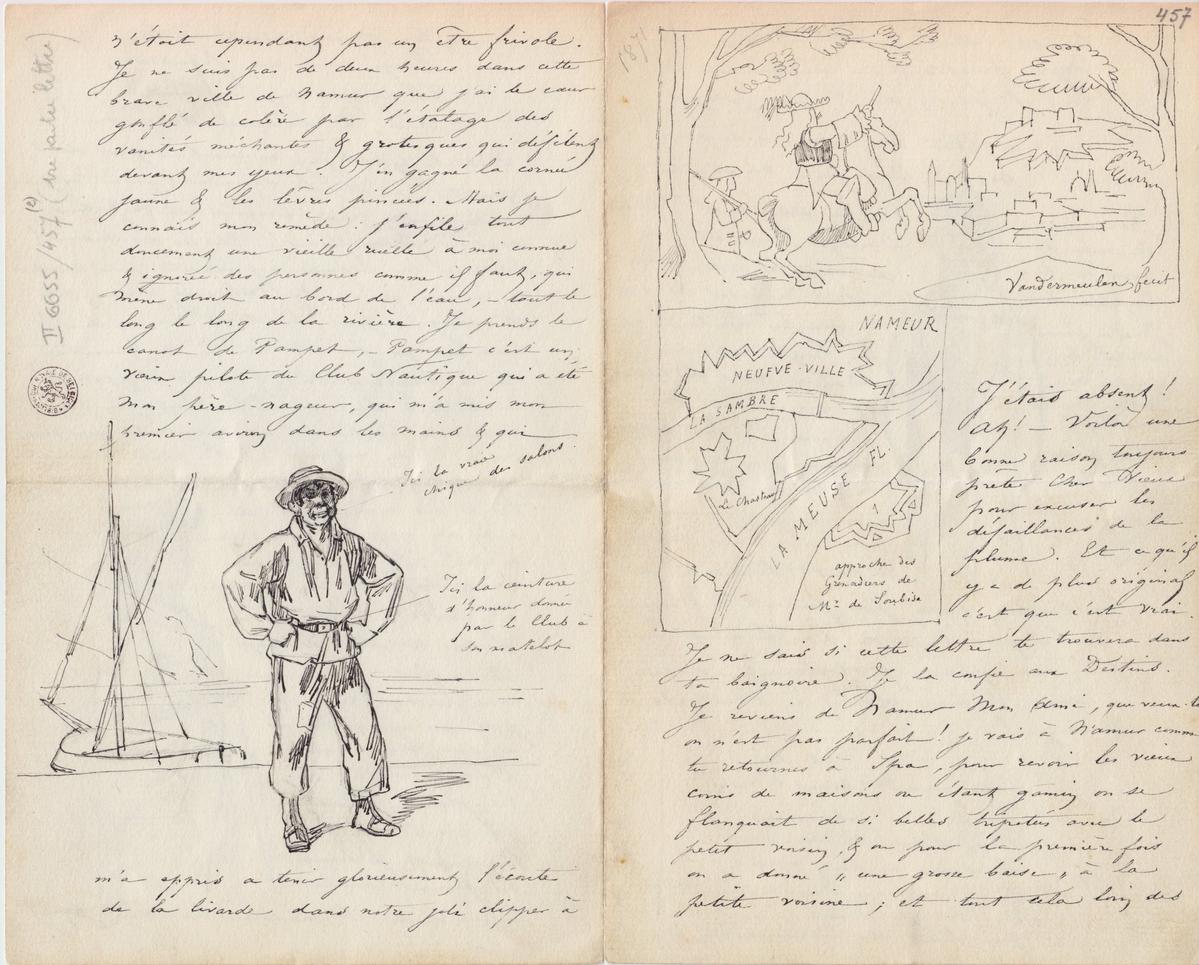 n'était cependant pas un être frivole.
Je ne suis pas de deux heures dans cette
brave ville de Namur que j'ai le cœur
gonflé de colère par l'étalage des
vanités méchantes & grotesques qui défilent
devant mes yeux. J'en gagne la cornée
jaune & les lèvres pincées. Mais je
connais mon remède : j'enfile tout
doucement une vieille ruelle à moi connue
& ignorée des personnes comme il faut, qui
mène droit au bord de l'eau, – tout le
long le long de la rivière. Je prends le
canot de Pampet, – Pampet c'est un
vieux pilote du Club Nautique qui a été
mon père-nageur, qui m'a mis mon
premier aviron dans les mains & qui
Ici la vraie
chique des salons.
Ici la ceinture
d'honneur donnée
par le Club à
son matelot
m'a appris a tenir glorieusement l'écoute
de la livarde dans notre joli clipper à
II 6655/457(2)
457
187
Vandermeulen fecit
NAMEUR
NEUFVE-VILLE
LA SAMBRE
Le Chasteau
LA MEUSE FL.
1
approche des
Grenadiers de
Mr de Soubise
J'étais absent!
Ah! – Voilà une
bonne raison toujours
prête Cher Vieux
pour excuser les
défaillances de la
plume. Et ce qu'il
y a de plus original
c'est que c'est vrai.
Je ne sais si cette lettre te trouvera dans
ta baignoire. Je la confie aux Destins.
Je reviens de Namur Mon Ami, que veux-tu
on n'est pas parfait! je vais à Namur comme
tu retournes à Spa, pour revoir les vieux
coins de maisons ou étant gamin on se
flanquait de si belles tripotées avec le
petit voisin, & ou pour la première fois
on a donné „une grosse baise„ à la
petite voisine ; et tout cela loin des